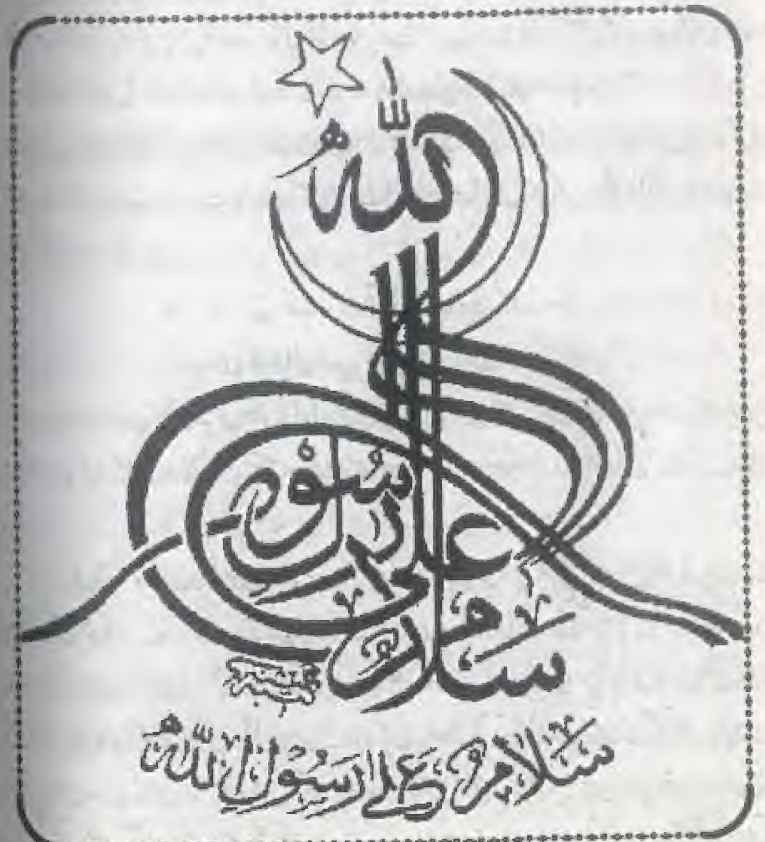 سلام على رسول الله
سَلَامٌ عَلٰی رَسُوْلِ اللهِ